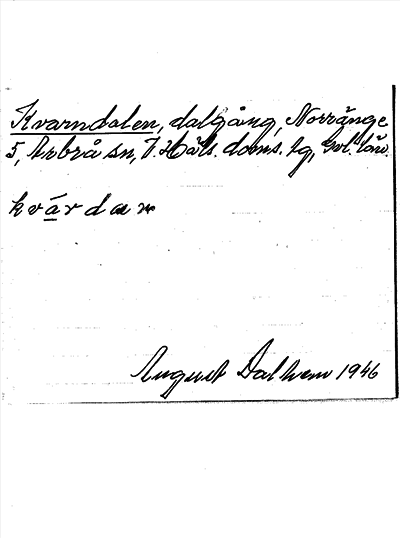 Kvarndalen, dalgång, Norränge
5, Arbrå sn, V. Häls. doms. tg, Gvl. län.
kvárdæn
August Dalhem 1946